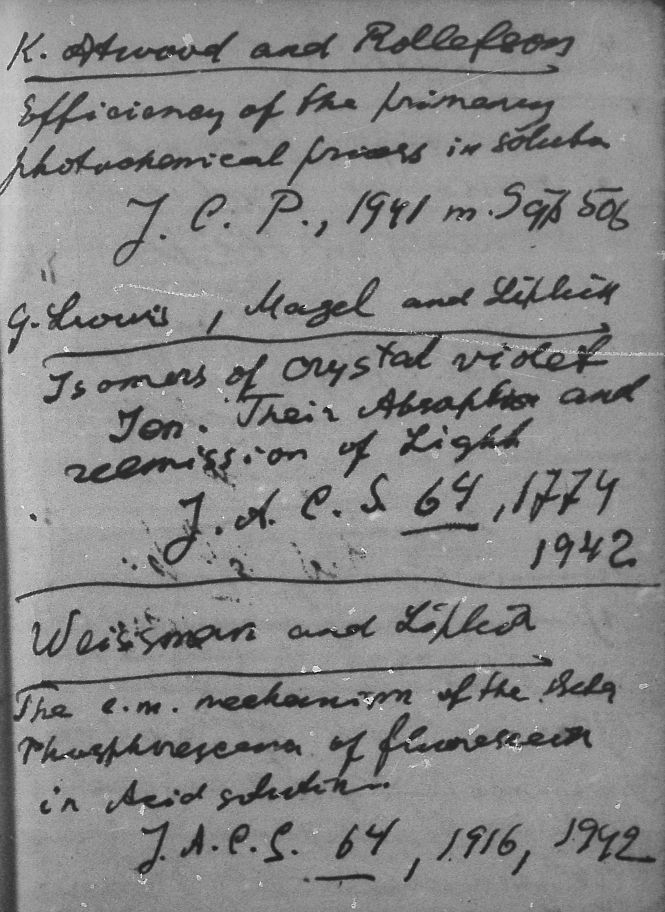 K. Atwood and Rollefson
Efficiency of the primary
photochemical process in solution
J. C. P., 1941 506
G. Lewis, Magel and Lipkin
Isomers of Crystal violet
Ion. Their Absorption and
reemission of Light
J. A. C. S. 64, 1774
1942
Weissman and Lipkin
The e.m. mechanism of the Beta
Phosphorescence of fluorescein
in Acid solution
J. A. C. S. 64, 1916, 1942